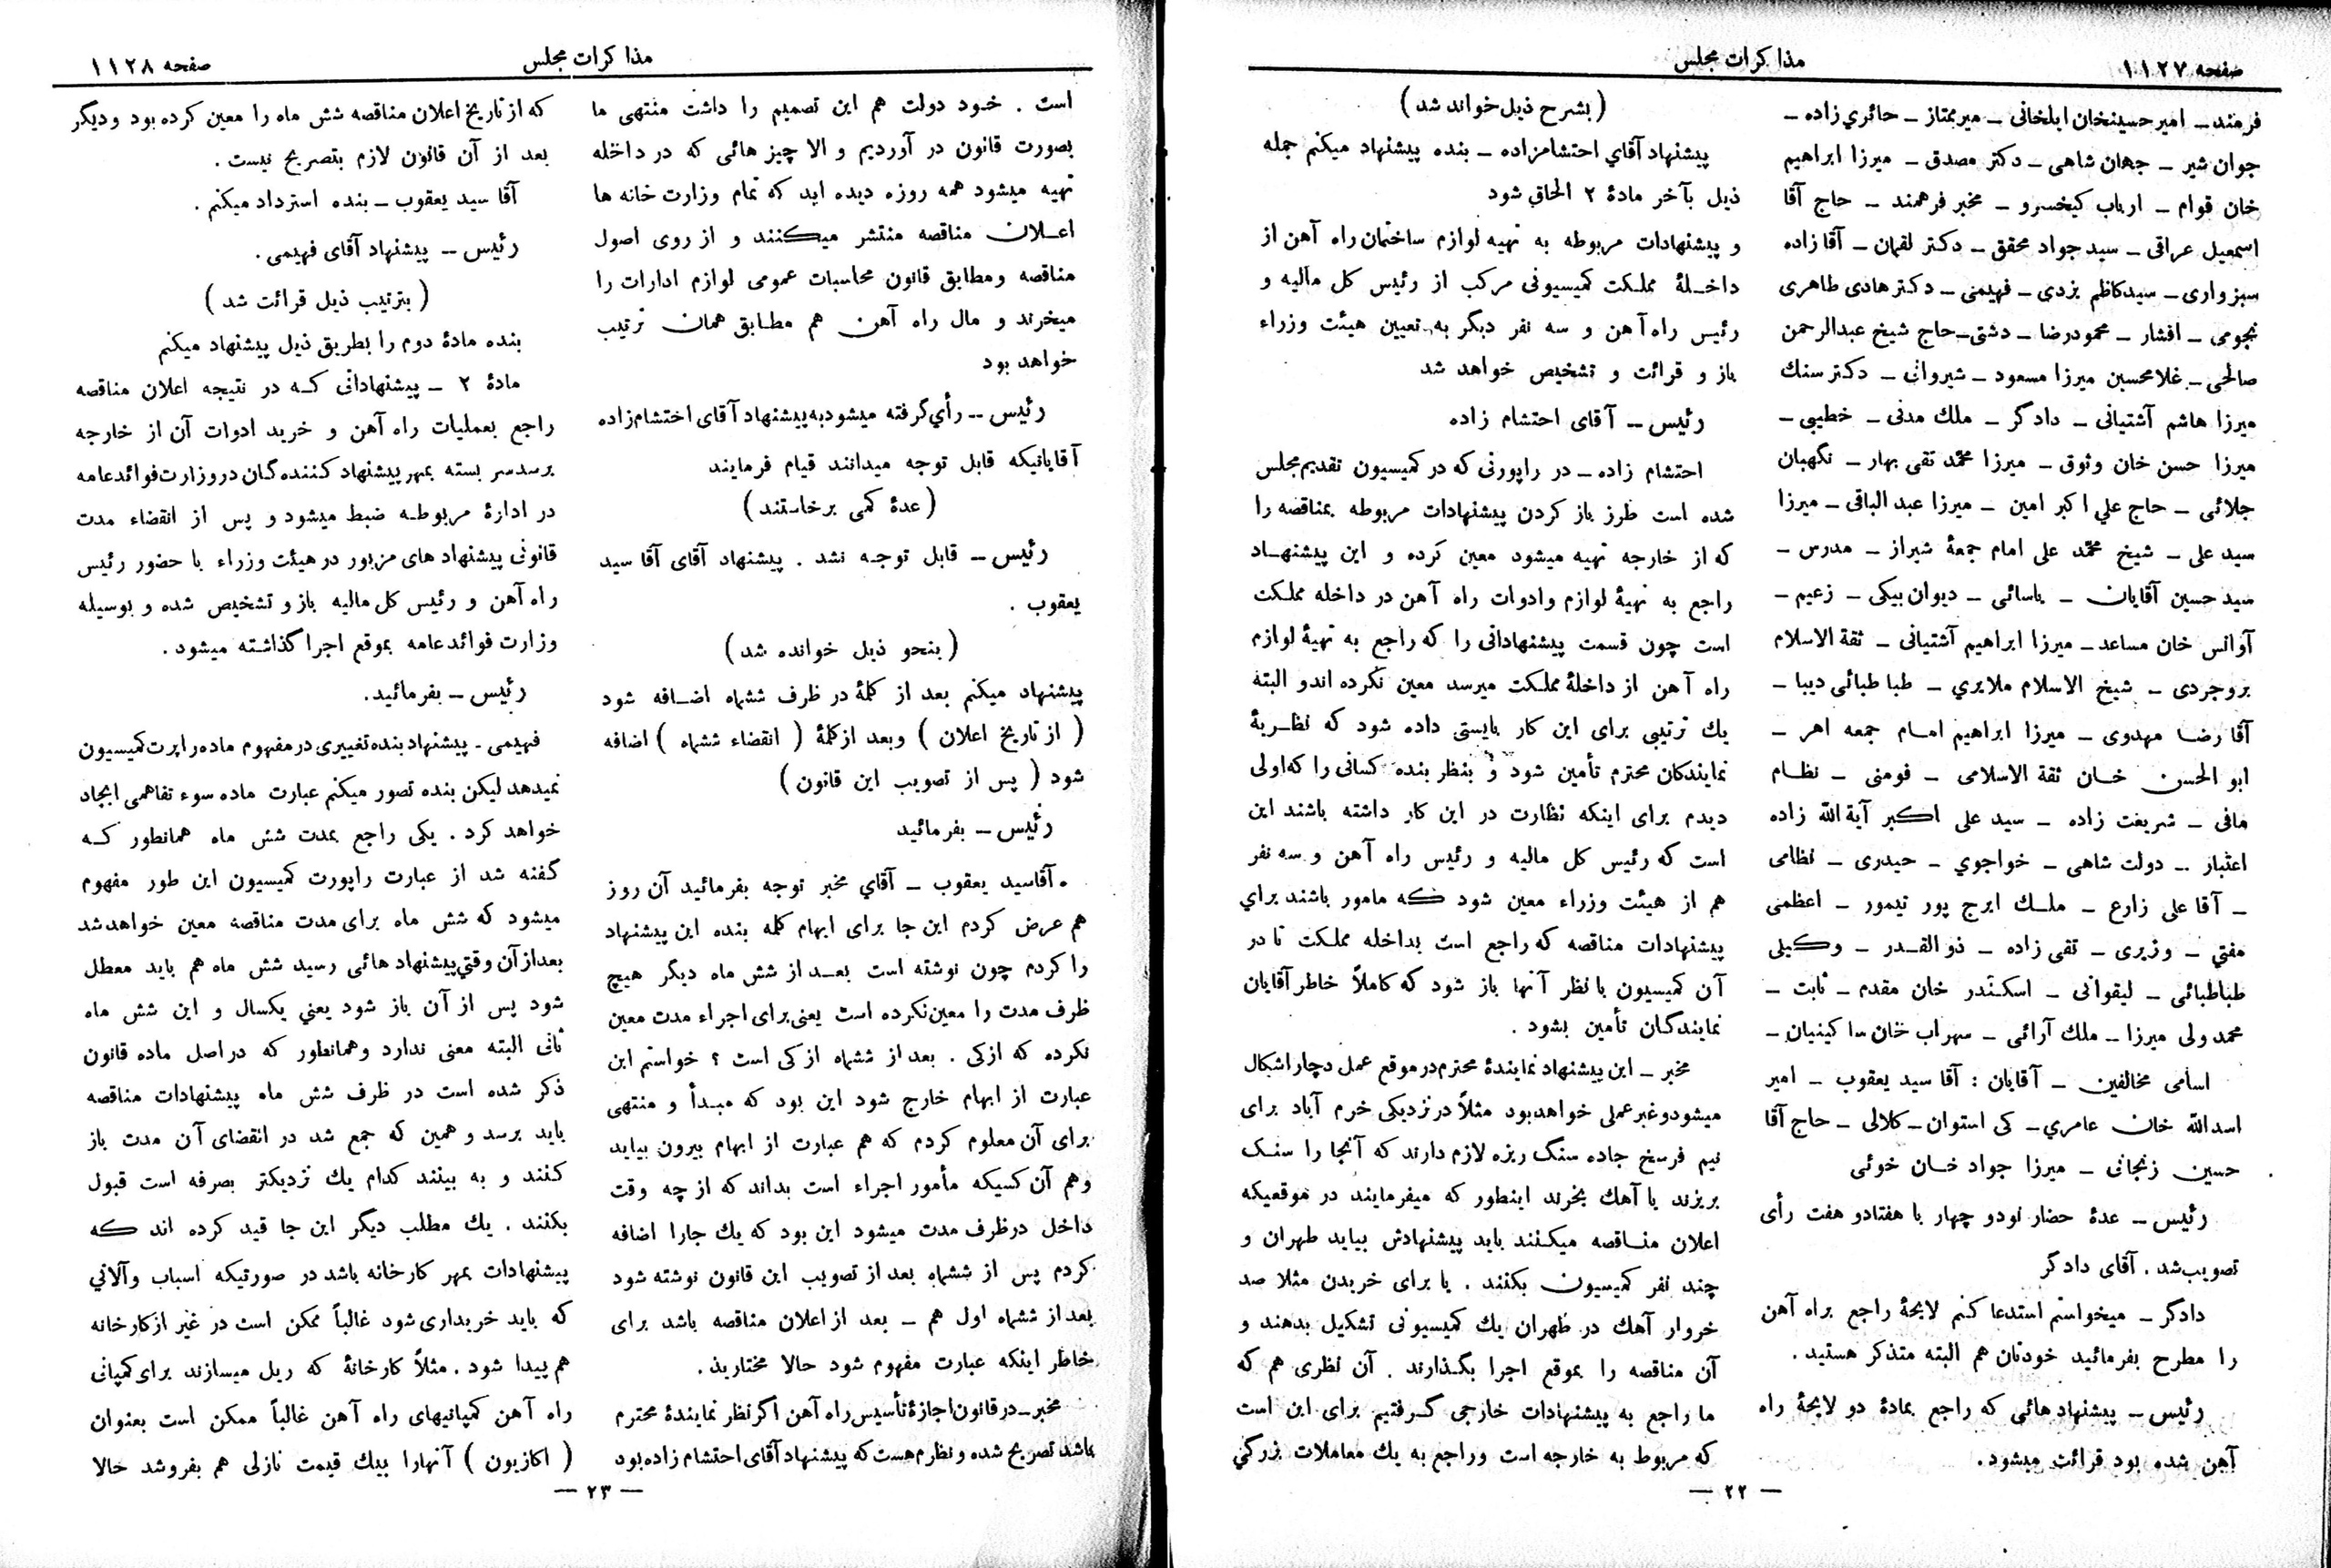 صفحه ۱۱۲۷
مذاكرات مجلس
فرمند ـ امیرحسینخان ایلخانی ـ میرممتاز ـ حائري زاده ـ
جوان شیر ـ جهان شاهی ـ دکتر مصدق ـ میرزا ابراهیم
خان قوام ـ ارباب کیخسرو ـ مخبر فرهمند ـ حاج آقا
اسمعیل عراقی ـ سید جواد محقق ـ دکتر لقمان ـ آقا زاده
سبزواری ـ سیدکاظم یزدی ـ فهیمی ـ دکتر هادی طاهری
نجومی ـ افشار ـ محمودرضا ـ دشتی ـ حاج شیخ عبدالرحمن
صالحی ـ غلامحسین میرزا مسعود ـ شیروانی ـ دکتر سنك
میرزا هاشم آشتیانی ـ دادگر ـ ملك مدنی ـ خطیبی ـ
میرزا حسن خان وثوق ـ میرزا محمّد تقی بهار ـ نگهبان
جلائی ـ حاج علي اکبر امین ـ میرزا عبد الباقی ـ میرزا
سید علی ـ شیخ محمّد علی امام جمعهٔ شیراز ـ مدرس ـ
سید حسین آقایان ـ یاسائی ـ دیوان بیکی ـ زعیم ـ
آوانس خان مساعد ـ میرزا ابراهیم آشتیانی ـ ثقة الاسلام
بروجردی ـ شیخ الاسلام ملایري ـ طباطبائی دیبا ـ
آقا رضا مهدوی ـ میرزا ابراهیم امام جمعه اهر ـ
ابو الحسن خان ثقة الاسلامی ـ فومنی ـ نظام
مافی ـ شریعت زاده ـ سید علی اکبر آیة الله زاده
اعتبار ـ دولت شاهی ـ خواجوي ـ حیدری ـ نظامی
ـ آقا علی زارع ـ ملك ایرج پور تیمور ـ اعظمی
مفتي ـ وزیری ـ تقی زاده ـ ذو القدر ـ وکیلی
طباطبائی ـ لیقوانی ـ اسکندر خان مقدم ـ ثابت ـ
محمد ولی میرزا ـ ملك آرائی ـ سهراب خان سا کینیان ـ
اسامی مخالفین ـ آقایان : آقا سید یعقوب ـ امیر
اسدالله خان عامري ـ کی استوان ـ کلالی ـ حاج آقا
حسین زنجانی ـ میرزا جواد خان خوئی
رئیس ـ عدهٔ حضار نودو چهار با هفتادو هفت رأی
تصویب شد . آقای دادگر
دادگر ـ میخواستم استدعا کنم لایحهٔ راجع براه آهن
را مطرح بفرمائید خودتان هم البته متذکر هستید .
رئیس ـ پیشنهاد هائی که راجع بمادهٔ دو لایحهٔ راه
آهن شده بود قرائت میشود.
(بشرح ذیل خوانده شد)
پیشنهاد آقاي احتشامزاده ـ بنده پیشنهاد میکنم جمله
ذیل بآخر مادهٔ ۲ الحاق شود
و پیشنهادات مربوطه به تهیه لوازم ساختمان راه آهن از
داخلهٔ مملکت کمیسیونی مرکب از رئیس کل مالیه و
رئیس راه آهن و سه نفر دیگر به تعیین هیئت وزراء
باز و قرائت و تشخیص خواهد شد
رئیس ـ آقای احتشام زاده
احتشام زاده ـ در راپورتی که در کمیسیون تقدیم مجلس
شده است طرز باز کردن پیشنهادات مربوطه بمناقصه را
که از خارجه تهیه میشود معین کرده و این پیشنهاد
راجع به تهیهٔ لوازم وادوات راه آهن در داخله مملکت
است چون قسمت پیشنهاداتی را که راجع به تهیهٔ لوازم
راه آهن از داخلهٔ مملکت میرسد معین نکرده اند و البته
یك ترتیبی برای این کار بایستی داده شود که نظریهٔ
نمایندکان محترم تأمین شود و بنظر بنده کسانی را که اولی
دیدم برای اینکه نظارت در این کار داشته باشند این
است که رئیس کل مالیه و رئیس راه آهن و سه نفر
هم از هیئت وزراء معین شود که مامور باشند براي
پیشنهادات مناقصه که راجع است بداخله مملکت تا در
آن کمیسیون با نظر آنها باز شود که کاملاً خاطر آقایان
نمایندگان تأمین بشود .
مخبر ـ این پیشنهاد نمایندهٔ محترم در موقع عمل دچار اشکال
میشود و غیر عملی خواهد بود مثلاً در نزدیکی خرم آباد برای
نیم فرسخ جاده سنگ ریزه لازم دارند که آنجا را سنك
بریزند یا آهك بخرند اینطور که میفرمایند در موقعیکه
اعلان مناقصه میکنند باید پیشنهادش بیاید طهران و
چند نفر کمیسیون بکنند . یا برای خریدن مثلا صد
خروار آهك در طهران یك کمیسیونی تشکیل بدهند و
آن مناقصه را بموقع اجرا بگذارند . آن نظری هم که
ما راجع به پیشنهادات خارجی گرفتیم برای این است
که مربوط به خارجه است وراجع به یك معاملات بزرگي
ـ ۲۲ ـ
مذاكرات مجلس
صفحه ۱۱۲۸
است . خود دولت هم این تصمیم را داشت منتهی ما
بصورت قانون در آوردیم و الا چیز هائی که در داخله
تهیه میشود همه روزه دیده اید که تمام وزارت خانه ها
اعلان مناقصه منتشر میکنند و از روی اصول
مناقصه ومطابق قانون محاسبات عمومی لوازم ادارات را
میخرند و مال راه آهن هم مطابق همان ترتیب
خواهد بود
رئیس ـ رأي گرفته میشود به پیشنهاد آقای احتشام زاده
آقایانیکه قابل توجه میدانند قیام فرمایند
(عدهٔ کمی برخاستند)
رئیس ـ قابل توجه نشد . پیشنهاد آقای آقا سید
یعقوب .
(بنحو ذیل خوانده شد)
پیشنهاد میکنم بعد از کلمهٔ در ظرف ششماه اضافه شود
( از تاریخ اعلان ) وبعد از کلمهٔ ( انقضاء ششماه ) اضافه
شود ( پس از تصویب این قانون )
رئیس ـ بفرمائید
آقاسید یعقوب ـ آقاي مخبر توجه بفرمائید آن روز
هم عرض کردم این جا برای ابهام کلمه بنده این پیشنهاد
را کردم چون نوشته است بعد از شش ماه دیگر هیچ
ظرف مدت را معین نکرده است یعنی برای اجراء مدت معین
نکرده که از کی . بعد از ششماه از کی است ؟ خواستم این
عبارت از ابهام خارج شود این بود که مبدأ و منتهی
برای آن معلوم کردم که هم عبارت از ابهام بیرون بیاید
وهم آن کسیکه مأمور اجراء است بداند که از چه وقت
داخل در ظرف مدت میشود این بود که یك جارا اضافه
کردم پس از ششماه بعد از تصویب این قانون نوشته شود
بعد از ششماه اول هم ـ بعد از اعلان مناقصه باشد برای
خاطر اینکه عبارت مفهوم شود حالا مختارید .
مخبر ـ در قانون اجازهٔ تأسیس راه آهن اگر نظر نمایندهٔ محترم
باشد تصریح شده و نظرم هست که پیشنهاد آقای احتشام زاده بود
که از تاریخ اعلان مناقصه شش ماه را معین کرده بود و دیگر
بعد از آن قانون لازم بتصریح نیست .
آقا سید یعقوب ـ بنده استرداد میکنم .
رئیس ـ پیشنهاد آقای فهیمی .
(بترتیب ذیل قرائت شد)
بنده مادهٔ دوم را بطریق ذیل پیشنهاد میکنم
مادهٔ ۲ ـ پیشنهاداتی که در نتیجه اعلان مناقصه
راجع بعملیات راه آهن و خرید ادوات آن از خارجه
برسد سر بسته بمهر پیشنهاد کننده گان در وزارت فوائد عامه
در ادارهٔ مربوطه ضبط میشود و پس از انقضاء مدت
قانونی پیشنهاد های مزبور در هیئت وزراء با حضور رئیس
راه آهن و رئیس کل مالیه باز و تشخیص شده و بوسیله
وزارت فوائد عامه بموقع اجرا گذاشته میشود .
رئیس ـ بفرمائید.
فهیمی ـ پیشنهاد بنده تغییری در مفهوم ماده راپرت کمیسیون
نمیدهد لیکن بنده تصور میکنم عبارت ماده سوء تفاهمی ایجاد
خواهد کرد . یکی راجع بمدت شش ماه همانطور که
گفته شد از عبارت راپورت کمیسیون این طور مفهوم
میشود که شش ماه برای مدت مناقصه معین خواهد شد
بعد از آن وقتي پیشنهاد هائی رسید شش ماه هم باید معطل
شود پس از آن باز شود یعني یکسال و این شش ماه
ثانی البته معنی ندارد وهمانطور که در اصل ماده قانون
ذکر شده است در ظرف شش ماه پیشنهادات مناقصه
باید برسد و همین که جمع شد در انقضای آن مدت باز
کنند و به بینند کدام یك نزدیکتر بصرفه است قبول
بکنند . یك مطلب دیگر این جا قید کرده اند که
پیشنهادات بمهر کارخانه باشد در صورتیکه اسباب وآلاتي
که باید خریداری شود غالباً ممکن است در غیر از کارخانه
هم پیدا شود . مثلاً کارخانهٔ که ریل میسازند برای کمپانی
راه آهن کمپانیهای راه آهن غالباً ممکن است بعنوان
( اکازیون ) آنهارا بیك قیمت نازلی هم بفروشد حالا
ـ ۲۳ ـ